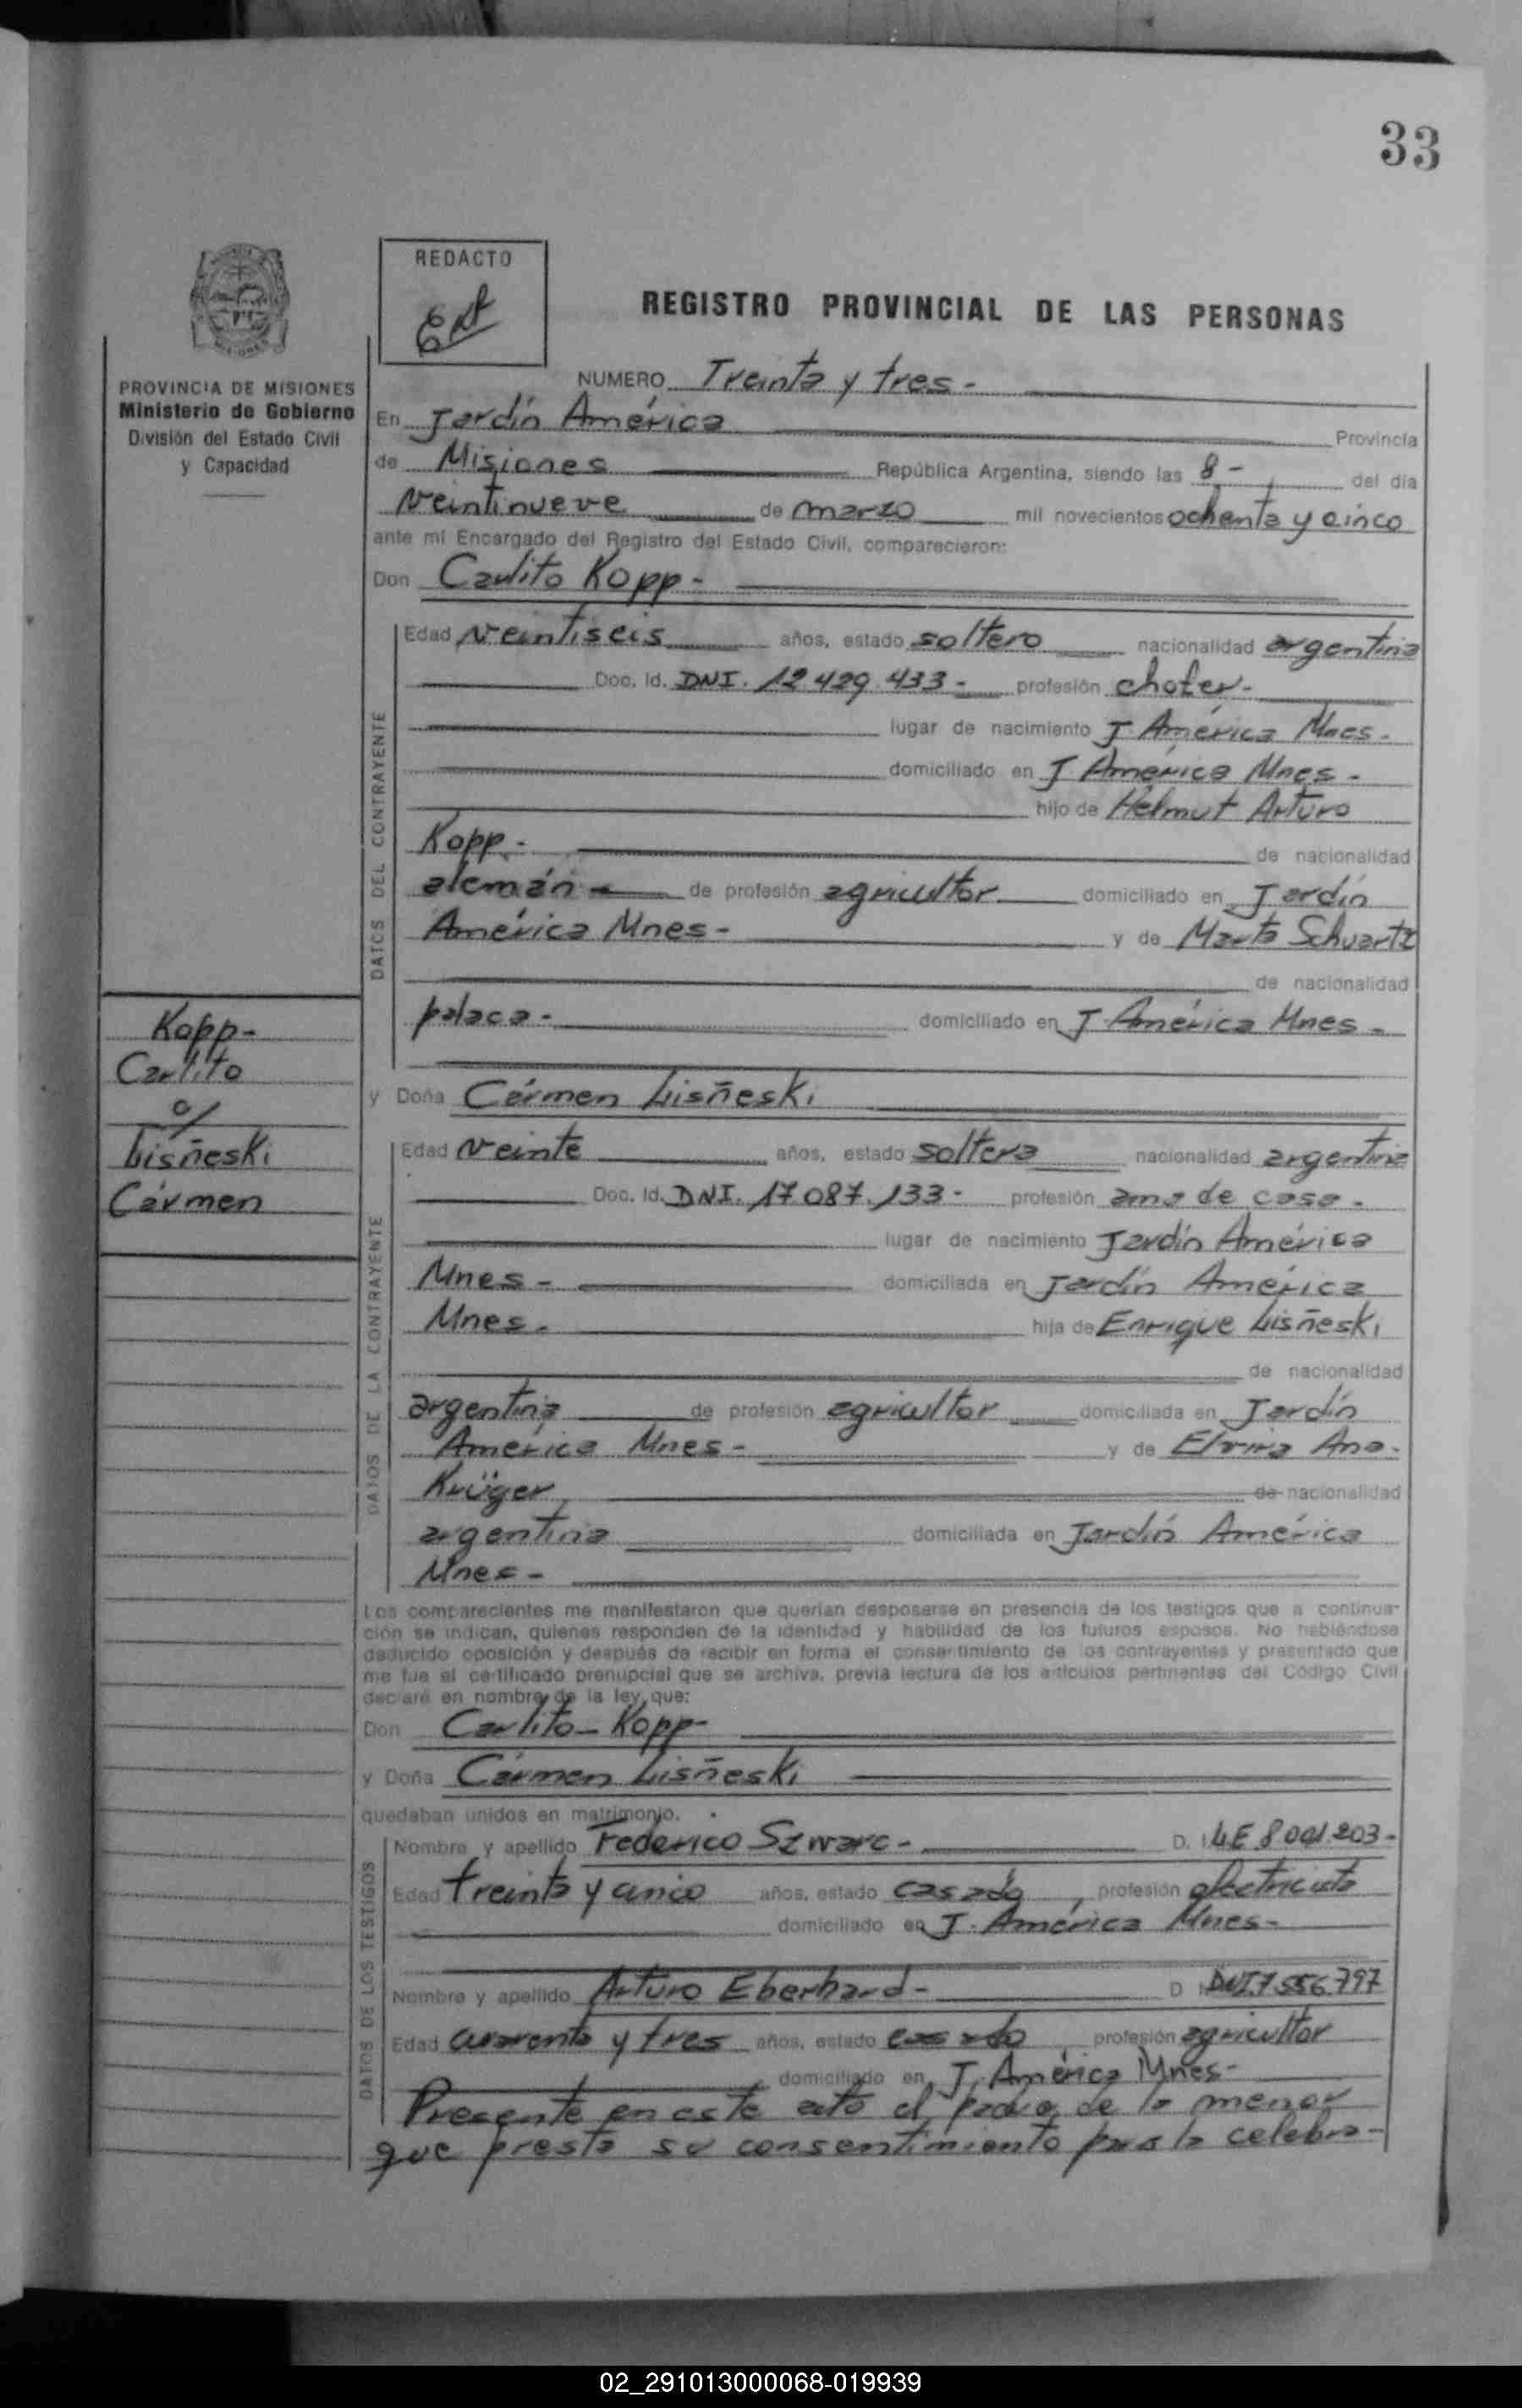 33
REDACTO
REGISTRO PROVINCIAL DE LAS PERSONAS
PROVINCIA DE MISIONES
Ministerio de Gobierno
División del Estado Civil
y Capacidad
NUMERO Treinta y tres -
En Jardín América Provincia
de Misiones República Argentina, siendo las 8 - del día
veintinueve de marzo mil novecientos ochenta y cinco
ante mí Encargado del Registro del Estado Civil, comparecieron:
Don Carlito Kopp -
DATOS DEL CONTRAYENTE
Edad veintiseis años, estado soltero nacionalidad argentina
Doc. Id. DNI. 12.429.433 - profesión chofer -
lugar de nacimiento J. América Mnes -
domiciliado en J. América Mnes -
hijo de Helmut Arturo
Kopp - de nacionalidad
alemán - de profesión agricultor domiciliado en Jardín
América Mnes - y de Marta Schuartz
de nacionalidad
polaca - domiciliado en J. América Mnes -
Kopp -
Carlito
c/
Lisñeski
Cármen
y Doña Cármen Lisñeski
DATOS DE LA CONTRAYENTE
Edad veinte años, estado soltera nacionalidad argentina
Doc. Id. DNI. 17.087.133 - profesión ama de casa -
lugar de nacimiento Jardín América
Mnes - domiciliada en Jardín América
Mnes - hija de Enrique Lisñeski
de nacionalidad
argentina de profesión agricultor domiciliada en Jardín
América Mnes - y de Elvira Ana -
Krüger de nacionalidad
argentina domiciliada en Jardín América
Mnes -
Los comparecientes me manifestaron que querían desposarse en presencia de los testigos que a continua-
ción se indican, quienes responden de la identidad y habilidad de los futuros esposos. No habiéndose
deducido oposición y después de recibir en forma el consentimiento de los contrayentes y presentado que
me fue el certificado prenupcial que se archiva, previa lectura de los artículos pertinentes del Código Civil
declaré en nombre de la ley, que:
Don Carlito - Kopp -
y Doña Cármen Lisñeski
quedaban unidos en matrimonio.
DATOS DE LOS TESTIGOS
Nombre y apellido Federico Szwarc - D. I. LE 8001203 -
Edad treinta y cinco años, estado casado, profesión electricista
domiciliado en J. América Mnes -
Nombre y apellido Arturo Eberhard - D I DNI. 7556797
Edad cuarenta y tres años, estado casado profesión agricultor
domiciliado en J. América Mnes -
Presente en este acto el padre de la menor
que presta su consentimiento para la celebra-
02_291013000068-019939